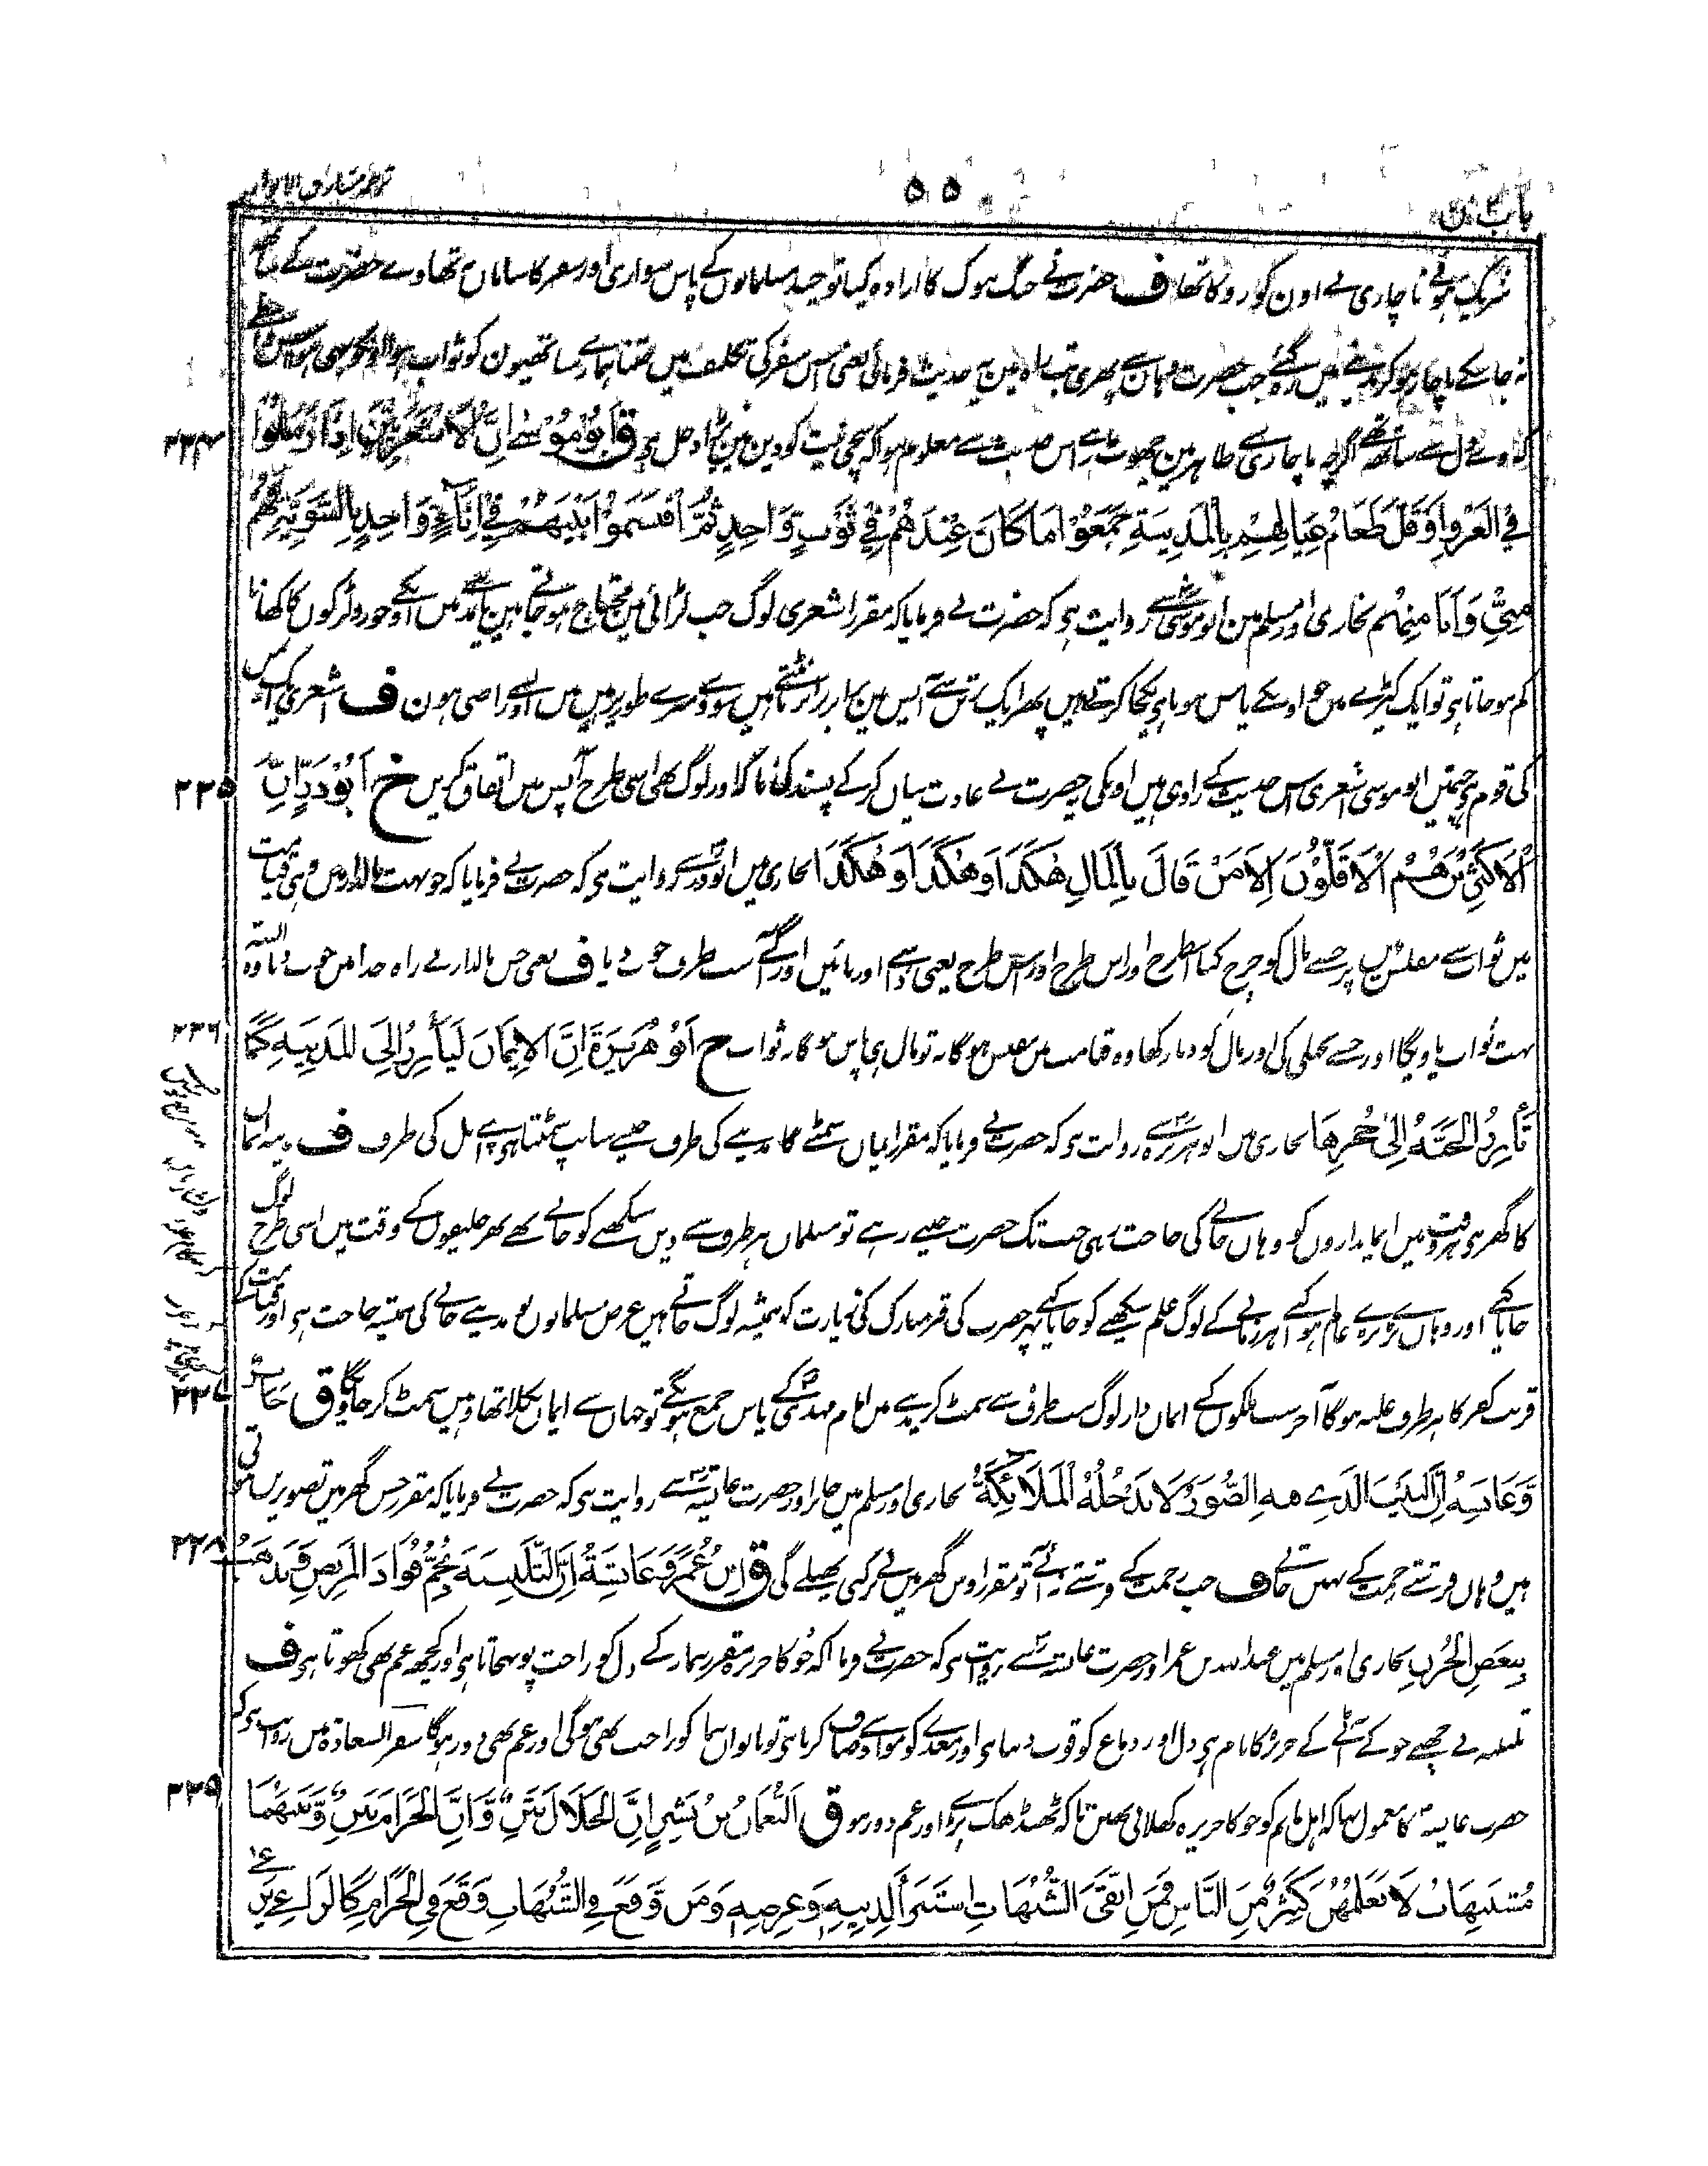 باب
۵۵
ترجمہ مشارق الانوار
شریک ہوتے ناچاری نے اون کو روکا تھا ف حضرت نے جنگ تبوک کا ارادہ کیا تو چند مسلمانوں کے پاس سواری اور سفر کا سامان نہ تھا وے حضرت کے ساتھ
نہ جا سکے ناچار ہو کر مدینے میں رہ گئے جب حضرت وہان سے پھرے تب راہ مین یہ حدیث فرمائی یعنی اس سفر کی تکلیف میں جتنا ہمارے ساتھیون کو ثواب ہوا
کہ وے دل سے ساتھ تھے اگرچہ ناچاری سے ظاہر مین چھوٹ رہے اس حدیث سے معلوم ہوا کہ سچی نیت کو دین مین بڑا دخل ہی ق ابو موسی ان الاشعریین اذا ارملوا
۲۳۴
فی الغزو او قل طعام عیالهم بالمدینة جمعوا ما کان عندهم فی ثوب واحد ثم اقتسموا بینهم فی اناء واحد بالسویة فهم
منی وانا منهم بخاری اور مسلم مین ابو موسی سے روایت ہی کہ حضرت نے فرمایا کہ مقرر اشعری لوگ جب لڑائی مین محتاج ہو جاتے ہین یا مدینے میں انکے جورو لڑکوں کا کھانا
کم ہو جاتا ہی تو ایک کپڑے میں جو اونکے پاس ہوتا ہی یکجا کرتے ہیں پھر ایک برتن سے آپس مین برابر بانٹتے ہیں سو وے میرے طور پر ہیں میں اون سے راضی ہون ف اشعری ایک
کی قوم ہی جسمیں ابو موسی اشعری اس حدیث کے راوی ہیں اونکی حضرت نے عادت بیان کر کے پسند کی تا اور لوگ بھی اسی طرح آپس میں اتفاق کریں خ ابو ذر ان
۲۳۵
الاکثرین هم الاقلون الا من قال بالمال هکذا وهکذا وهکذا بخاری میں ابوذر سے روایت ہی کہ حضرت نے فرمایا کہ جو بہت مالدار ہیں وہی قیامت
میں ثواب سے مفلس ہیں پر جسنے مال کو خرچ کیا اس طرح اور اس طرح اور اس طرح یعنی داہنے اور بائیں اور آگے سب طرف خوب دیا ف یعنی جس مالدار نے راہ خدا میں خوب دیا وہ البتہ
بہت ثواب پاویگا اور جسنے بخیلی کی اور مال کو دبا رکھا وہ قیامت میں مفلس ہوگا نہ تو مال ہی پاس ہوگا نہ ثواب خ ابو هریرة ان الایمان لیأرز الی المدینة کما
۲۳۶
تأرز الحیة الی جحرها بخاری میں ابو ہریرہ سے روایت ہی کہ حضرت نے فرمایا کہ مقرر ایمان سمٹے گا مدینے کی طرف جیسے سانپ سمٹتا ہی اپنے بل کی طرف ف مدینہ ایمان
کا گھر ہی ہر وقت میں ایمانداروں کو وہاں جانے کی حاجت رہی جب تک حضرت جیتے رہے تو مسلمان ہر طرف سے دین سیکھنے کو جاتے تھے پھر خلیفوں کے وقت میں اسی طرح لوگ
جایا کیے اور وہاں بڑے بڑے عالم ہوئے ہر زمانے کے لوگ علم سیکھنے کو جایا کیے پھر حضرت کی قبر مبارک کی زیارت کو ہمیشہ لوگ جاتے ہیں غرض مسلمانوں کو مدینے جانے کی ہمیشہ حاجت ہی اور قیامت کے
قریب کفر کا ہر طرف غلبہ ہوگا آخر سب ملکوں کے ایمان دار لوگ سب طرف سے سمٹ کر مدینے میں امام مہدی کے پاس جمع ہونگے تو جہاں سے ایمان نکلا تھا وہیں سمٹ کر جاویگا ق جابر
۲۳۷
وعایشة ان البیت الذی فیه الصور لا تدخله الملائکة بخاری اور مسلم میں جابر اور حضرت عایشہ سے روایت ہی کہ حضرت نے فرمایا کہ مقرر جس گھر میں تصویریں ہوتی
ہیں وہاں فرشتے رحمت کے نہیں جاتے ف جب رحمت کے فرشتے نہ آئے تو مقرر اوس گھر میں بے برکتی پھیلے گی ق ابن عمر وعایشة ان التلبینة تجم فؤاد المریض وتذهب
۲۳۸
ببعض الحزن بخاری اور مسلم میں عبد اللہ بن عمر اور حضرت عایشہ سے روایت ہی کہ حضرت نے فرمایا کہ جو کا حریرہ مقرر بیمار کے دل کو راحت پہونچاتا ہی اور کچھ غم بھی کھوتا ہی ف
تلبینہ بے چھنے جو کے آٹے کے حریرہ کا نام ہی دل اور دماغ کو قوت دیتا ہی اور معدے کو مواد سے صاف کرتا ہی تو ناتواں بیمار کو راحت بھی ہوگی اور غم بھی دور ہوگا سفر السعادة میں روایت ہی کہ
حضرت عایشہ کا معمول تھا کہ اہل ماتم کو جو کا حریرہ کھلاتی تھیں تا کہ ٹھنڈھک پڑے اور غم دور ہو ق النعمان بن بشیر ان الحلال بین وان الحرام بین وبینهما
۲۳۹
مشتبهات لا یعلمهن کثیر من الناس فمن اتقی الشبهات استبرأ لدینه وعرضه ومن وقع فی الشبهات وقع فی الحرام کالراعی یرعی